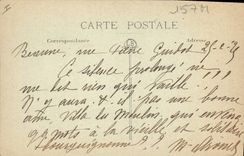 1574
CARTE POSTALE
Correspondance
Adresse
Beaune, rue Guidot 25-2-
Ce silence prolongé ne me
dit rien qui vaille!!!
N'y aura-t-il pas une bonne
âme, Villa du Moulin, qui enverra
qq mots à la vieille et solitaire
bourguignonne?